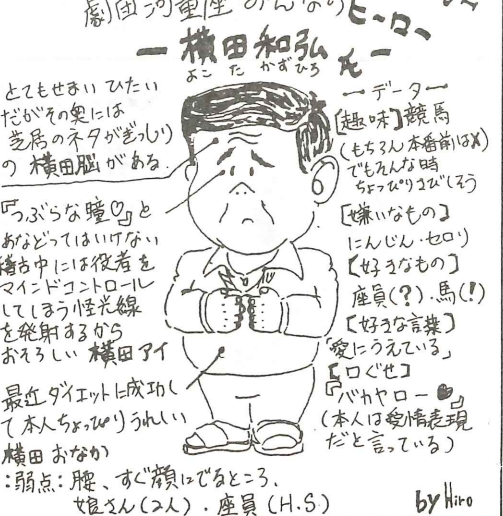 劇団河童座 みんなのヒーロー
ー 横田和弘 氏 ー
よこ た かずひろ
とてもせまい ひたい
だがその奥には
芝居のネタがぎっしり
の 横田脳 がある.
『つぶらな瞳♡』と
あなどってはいけない
稽古中には役者を
マインドコントロール
してしまう怪光線
を発射するから
おそろしい 横田アイ
最近ダイエットに成功し
て本人ちょっぴりうれしい
横田 おなか
:弱点: 腰、すぐ顔にでるところ.
娘さん(2人)・座員(H.S)
ーデーター
[趣味]競馬
(もちろん本番前はX)
でもそんな時
ちょっぴりさびしそう
[嫌いなもの]
にんじん・セロリ
[好きなもの]
座員(?)・馬(!)
[好きな言葉]
「愛にうえている」
[口ぐせ]
『バカヤロー♥』
(本人は愛情表現
だと言っている)
by Hiro